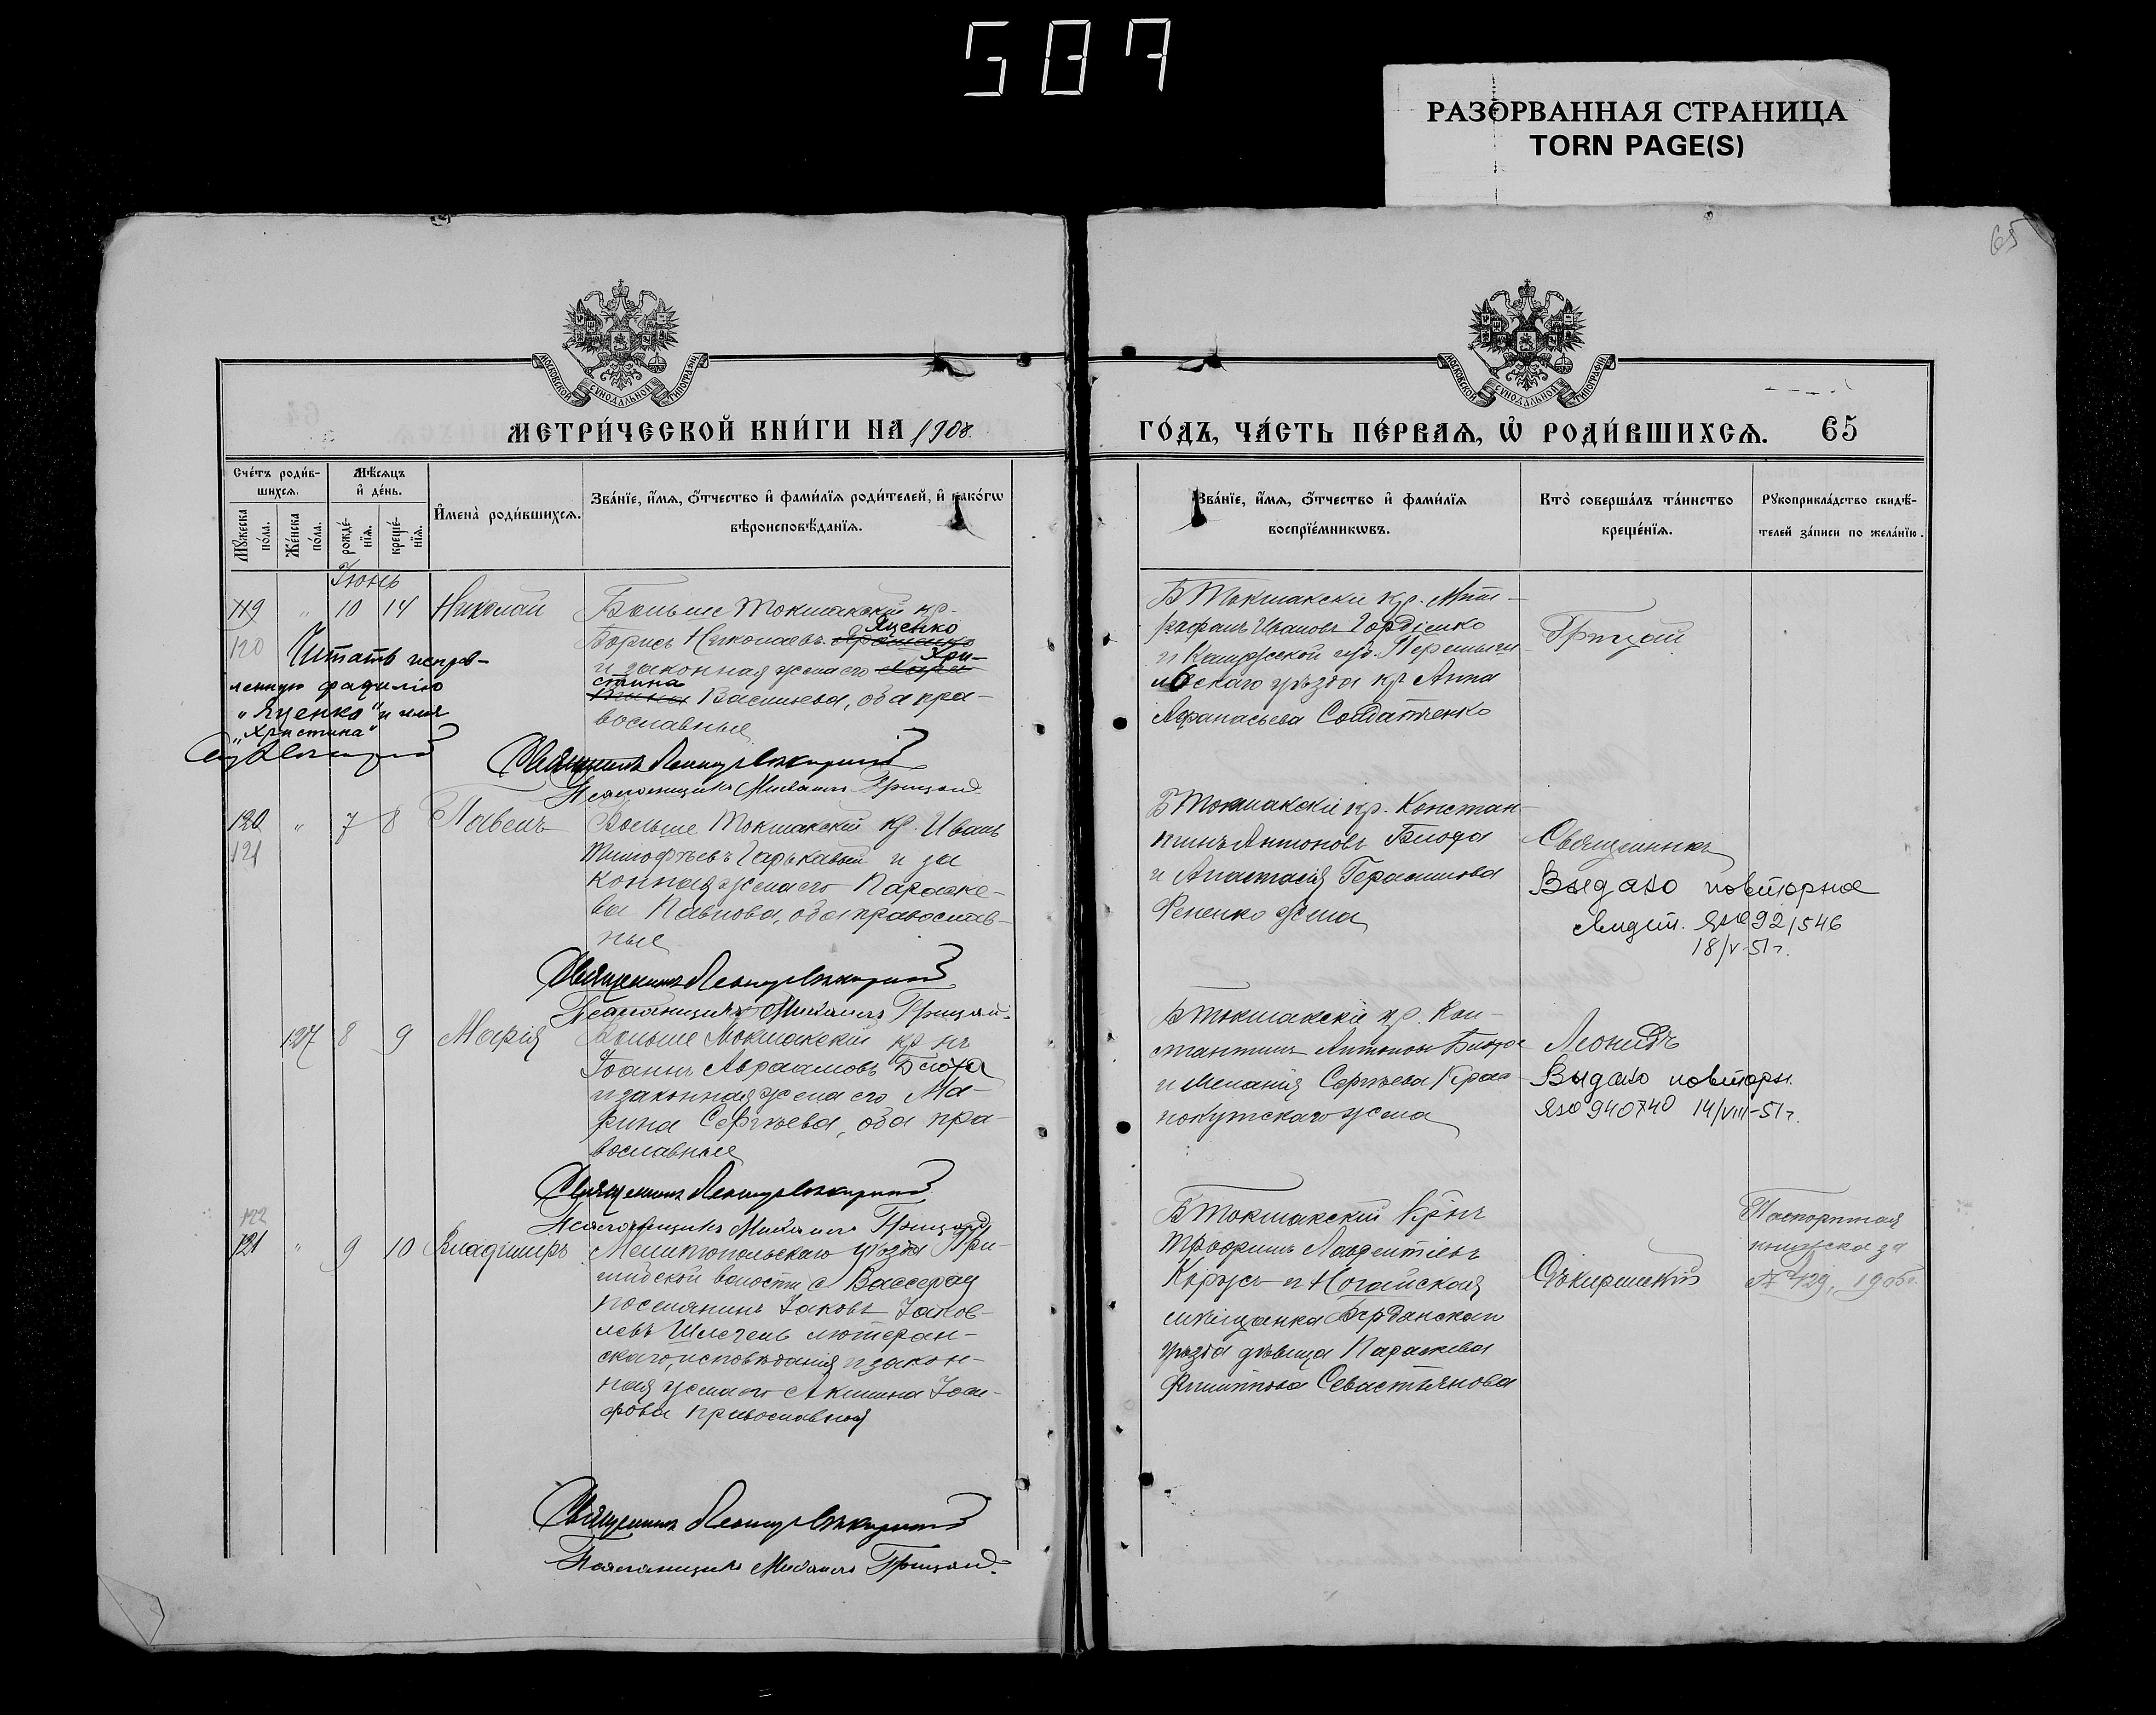 587
РАЗОРВАННАЯ СТРАНИЦА
TORN PAGE(S)
65
МОСКОВСКОЙ СУНОДАЛЬНОЙ ТИПОГРАФІИ
МОСКОВСКОЙ СУНОДАЛЬНОЙ ТИПОГРАФІИ
МЕТРИ́ЧЕСКОЙ КНИ́ГИ НА 1908
ГО́ДЪ, ЧА́СТЬ ПЕ́РВАѦ, Ѡ҆ РОДИ́ВШИХСѦ. 65
Сче́тъ роди́в-
шихсѧ.
Мꙋ́жеска
по́ла.
Же́нска
по́ла.
Мѣ́сѧцъ
и҆ де́нь.
рожде́-
нїѧ.
креще́-
нїѧ.
И҆мена̀ роди́вшихсѧ.
Зва́нїе, и҆́мѧ, ѻ҆́тчество и҆ фами́лїѧ роди́телей, и҆ како́гѡ
вѣроисповѣ́данїѧ.
Зва́нїе, и҆́мѧ, ѻ҆́тчество и҆ фами́лїѧ
воспрїе́мникѡвъ.
Кто̀ соверша́лъ та́инство
креще́нїѧ.
Рꙋкоприкла́дство свидѣ́-
телей за́писи по жела́нїю.
Іюнь
119 " 10 14 Николай
120
Больше Токмакскій кр.
Яценко
Борисъ Николаевъ
Хри-
и законная жена его
стина
Васильева, оба пра-
вославные
Читать исправ-
ленную фамилію
"Яценко" и имя
"Христина"
Священникъ Леонидъ Сѣкирскій
Псаломщикъ Михаилъ Грицай
Б Токмакскіе кр. Мит-
рофанъ Ивановъ Гордіенко
и Калужской губ. Перемышл-
ьскаго уѣзда кр. Анна
Афанасьева Солдатченко
Грицай
120 " 7 8 Павелъ
121
Больше Токмакскій кр. Иванъ
Тимофѣевъ Гарькавый и за
конная жена его Параске-
ва Павлова, оба православ-
ные
Священникъ Леонидъ Сѣкирскій
Псаломщикъ Михаилъ Грицай.
Б Токмакскіе кр. Констан-
тинъ Антоновъ Блюда
и Анастасія Герасимова
Фененко жена
Священникъ
Выдано повторное
свидет. 921546
18/V-51г.
127 8 9 Марія
Больше Токмакскій кр нъ
Іоаннъ Авраамовъ Блюда
и законная жена его Ма-
рина Сергѣева, оба пра-
вославные
Священникъ Леонидъ Сѣкирскій
Псаломщикъ Михаилъ Грицай
Б Токмакскіе кр. Кон-
стантинъ Антоновъ Блюда
и Меланія Сергѣева Крас-
нокутскаго жена
Леонидъ
Выдано повторн.
ЯЮ 940740 14/VIII-51г.
122
121 " 9 10 Владиміръ
Мелитопольскаго уѣзда При-
шибской волости с Вассерау
поселянинъ Іаковъ Іаков-
левъ Шлегель лютеран-
скаго исповѣданія и закон-
ная жена его Акилина Іоси-
фова православной
Священникъ Леонидъ Сѣкирскій
Псаломщикъ Михаилъ Грицай.
Б Токмакскій Кр нъ
Трофимъ Лаврентіевъ
и Ногайская
мѣщанка Бердянскаго
уѣзда дѣвица Параскева
Филиппова Севастьянова
Сѣкирскій
Паспортная
книжка за
№ 429. 1905г.